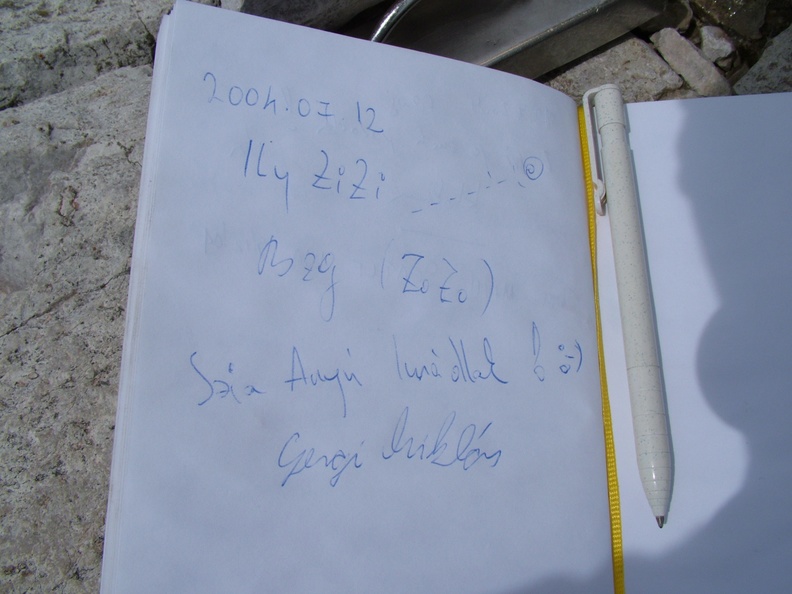 2004.07.12
Ily ZiZi
Bzg (ZoZo)
Szia Anyú Imádlak! :)
Gergi Miklós